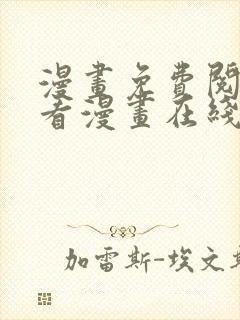 漫畫免費閱
看漫畫在綫
加雷斯-埃文斯